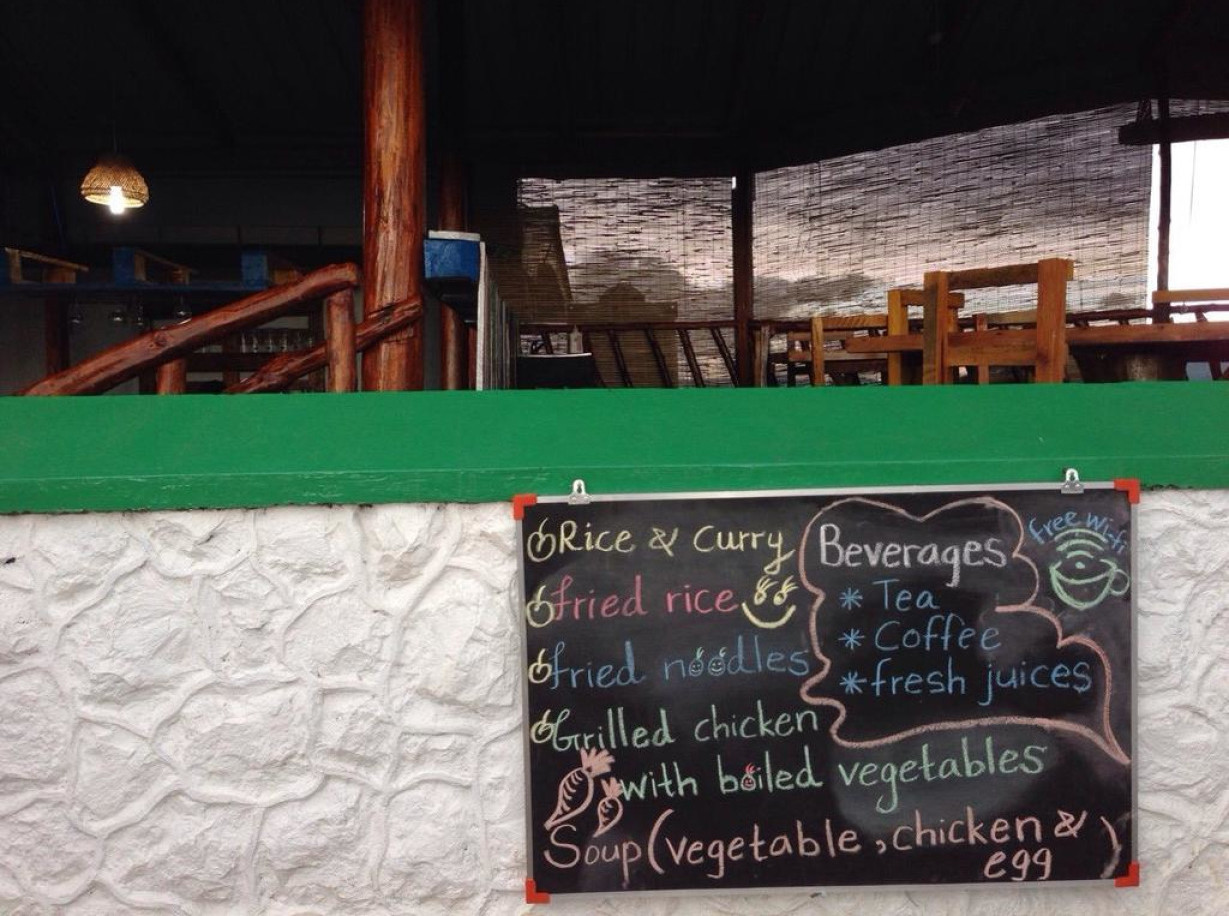 Rice & Curry
fried rice
fried noodles
Grilled chicken
with boiled vegetables
Soup (vegetable, chicken &
egg)
Beverages
* Tea
* Coffee
* fresh juices
free Wi-fi